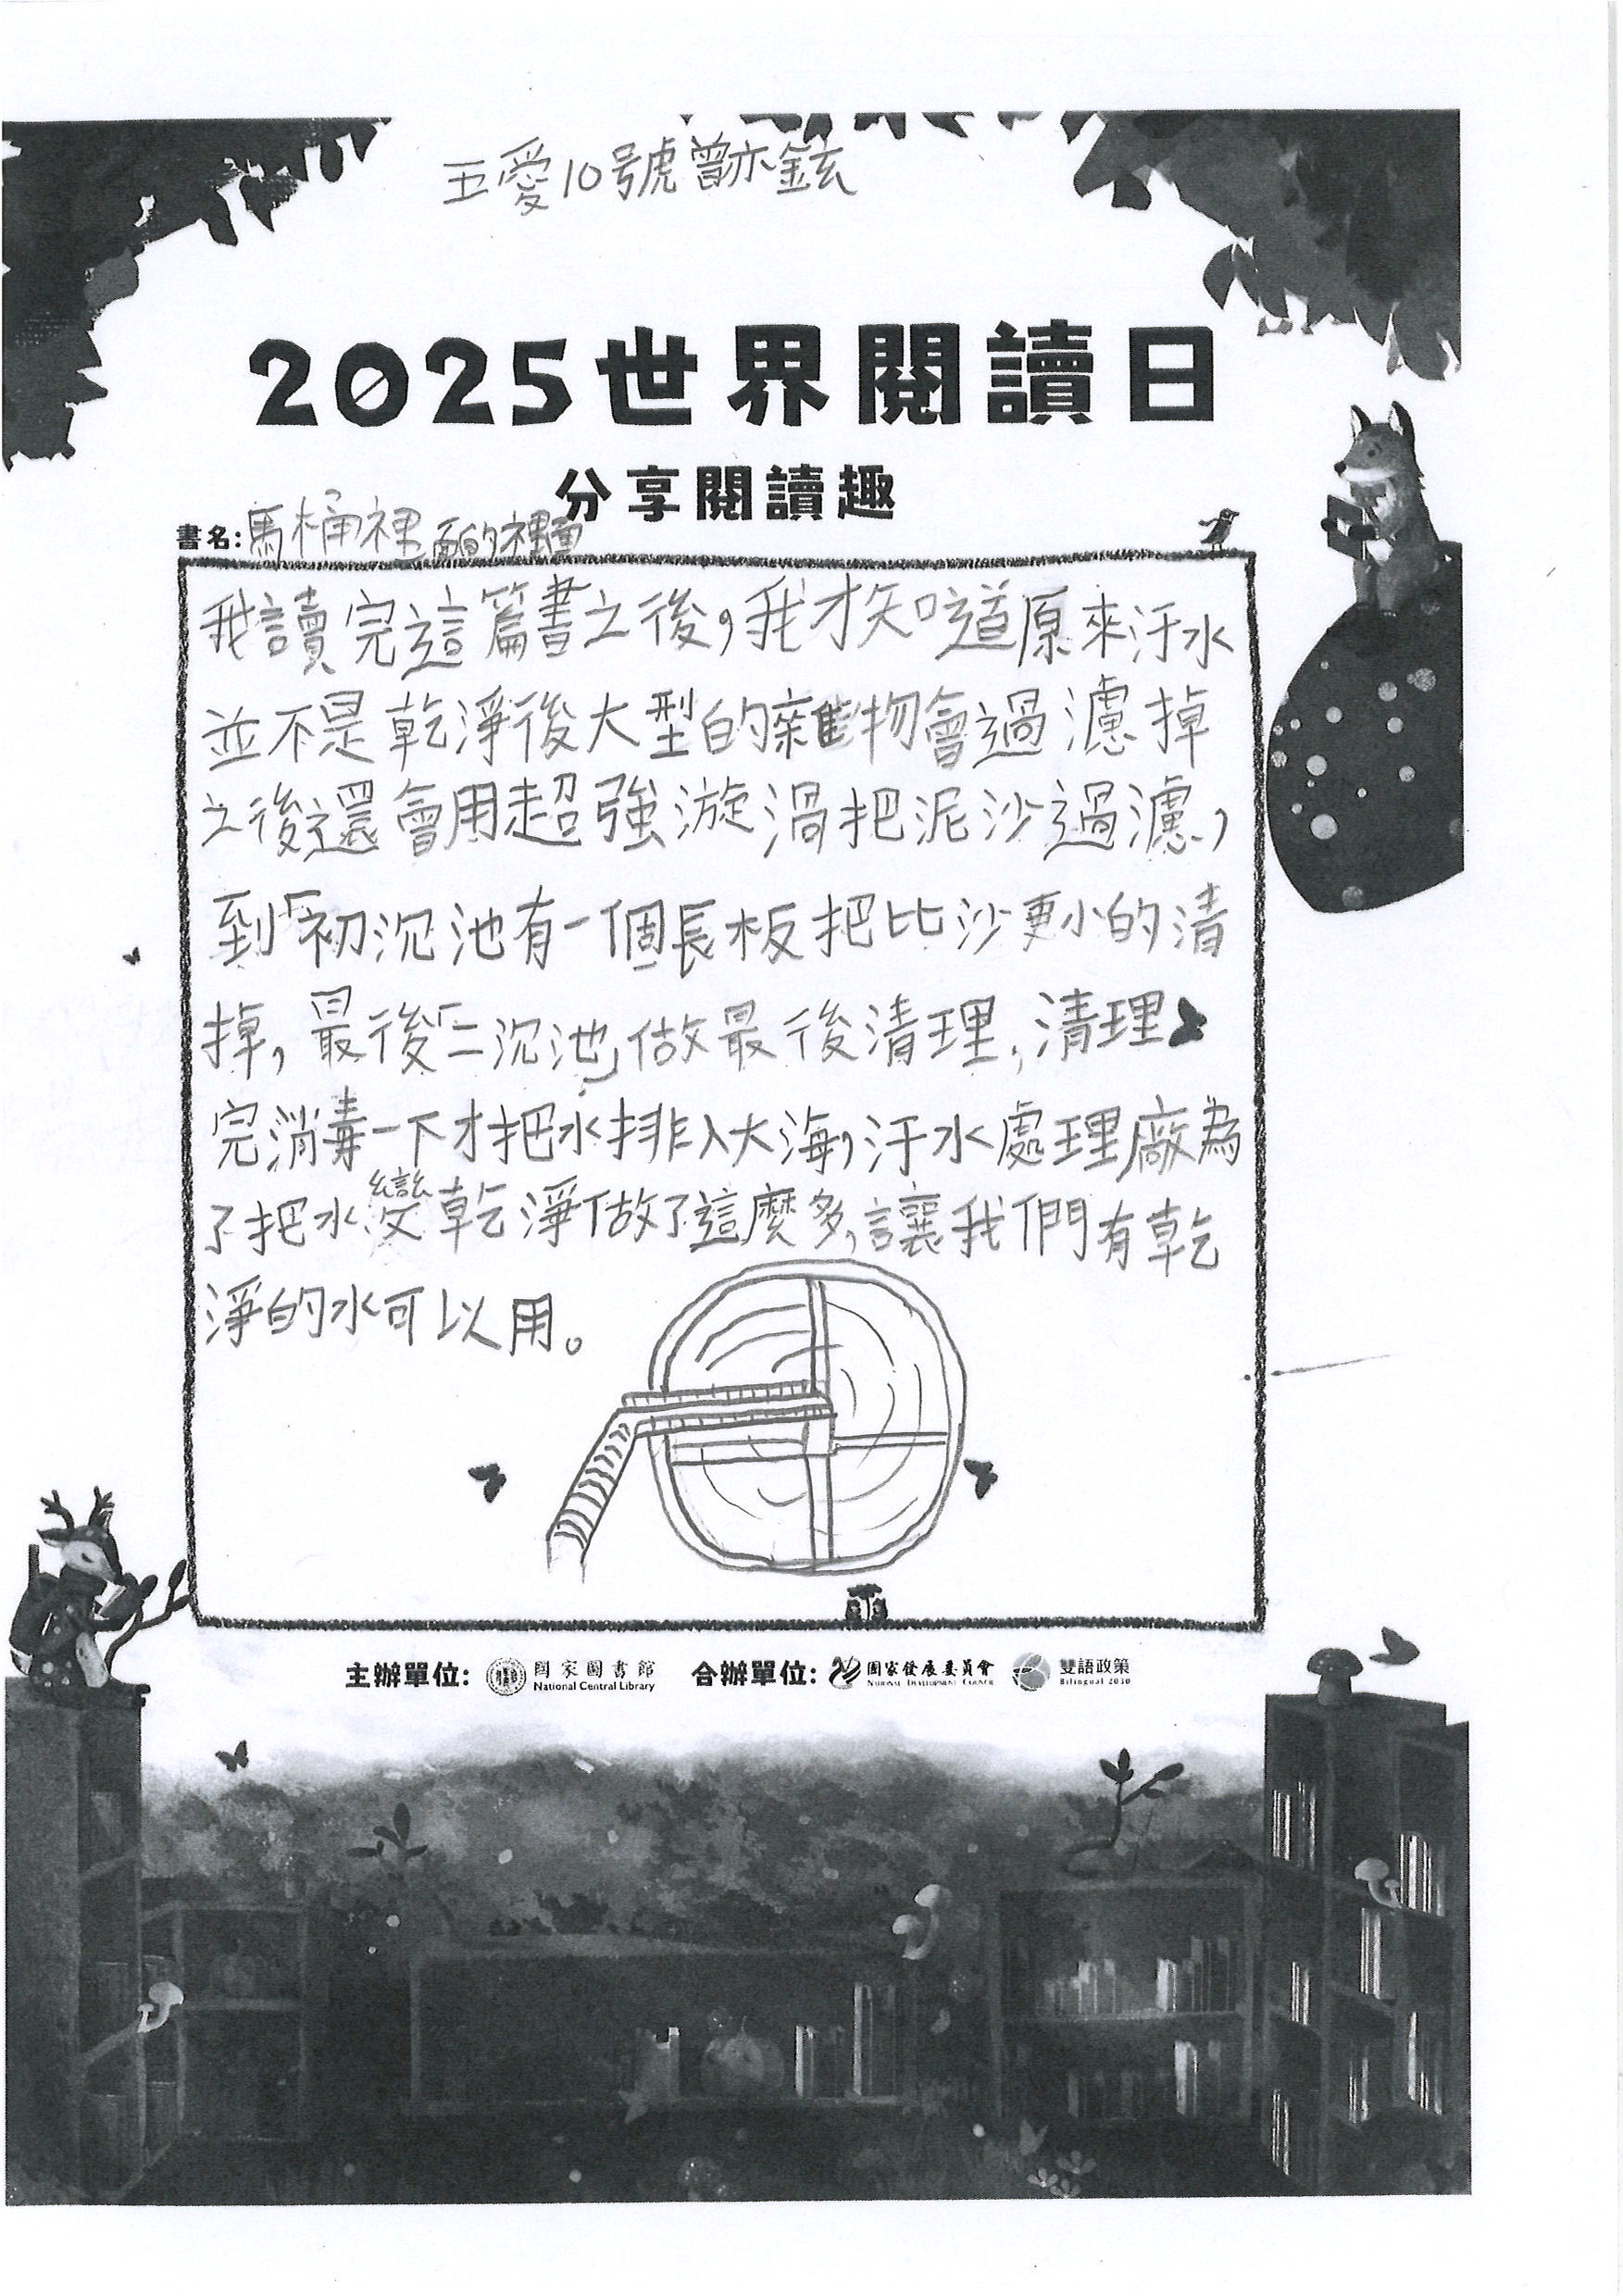 五愛10號曾亦鉉
2025世界閱讀日
分享閱讀趣
書名:馬桶裡面的裡面
我讀完這篇書之後,我才知道原來汙水
並不是乾淨後大型的雜物會過濾掉
之後還會用超強漩渦把泥沙過濾,
到「初沉池有一個長板把比沙更小的清
掉,最後「二沉池」做最後清理,清理
完消毒一下才把水排入大海,汙水處理廠為
了把水變乾淨做了這麼多,讓我們有乾
淨的水可以用。
主辦單位: 國家圖書館 合辦單位: 國家發展委員會 雙語政策
National Central Library NATIONAL DEVELOPMENT COUNCIL Bilingual 2030